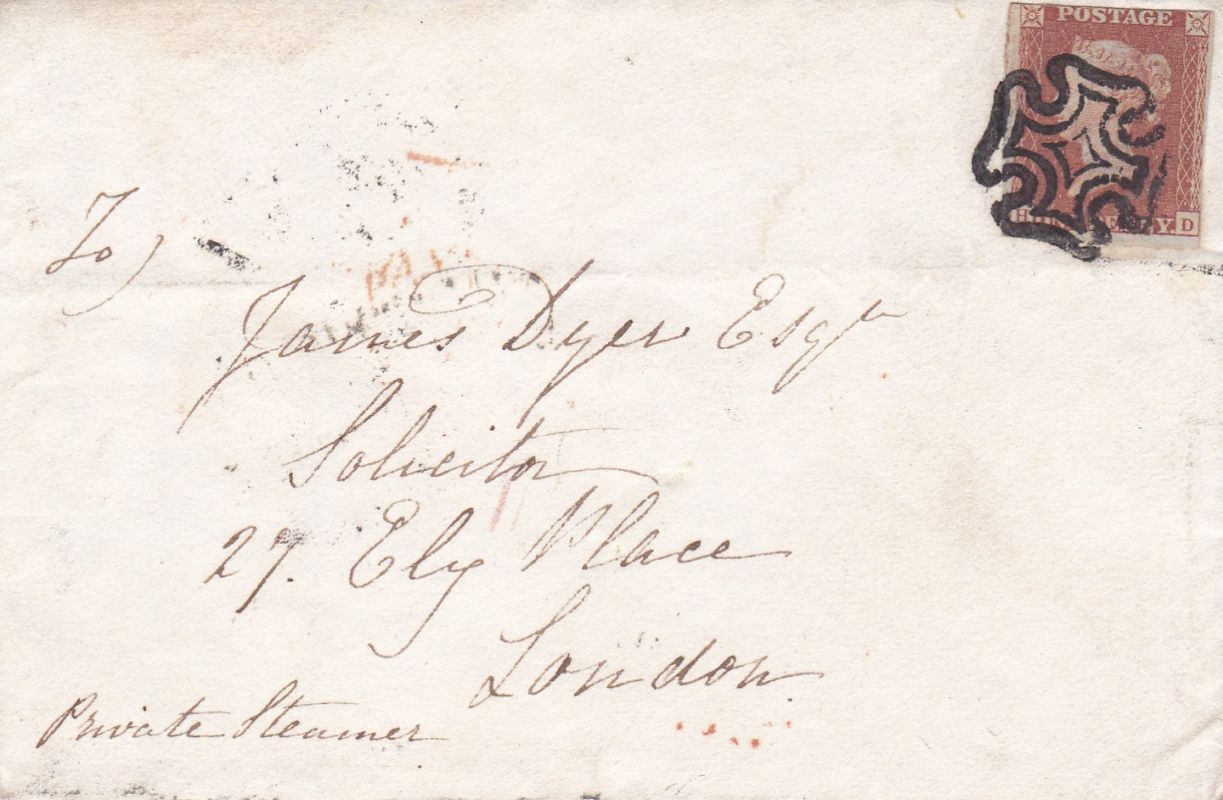 POSTAGE
H ONE PENNY D
To)
James Dyer Esqre
Solicitor
27. Ely Place
London
Private Steamer